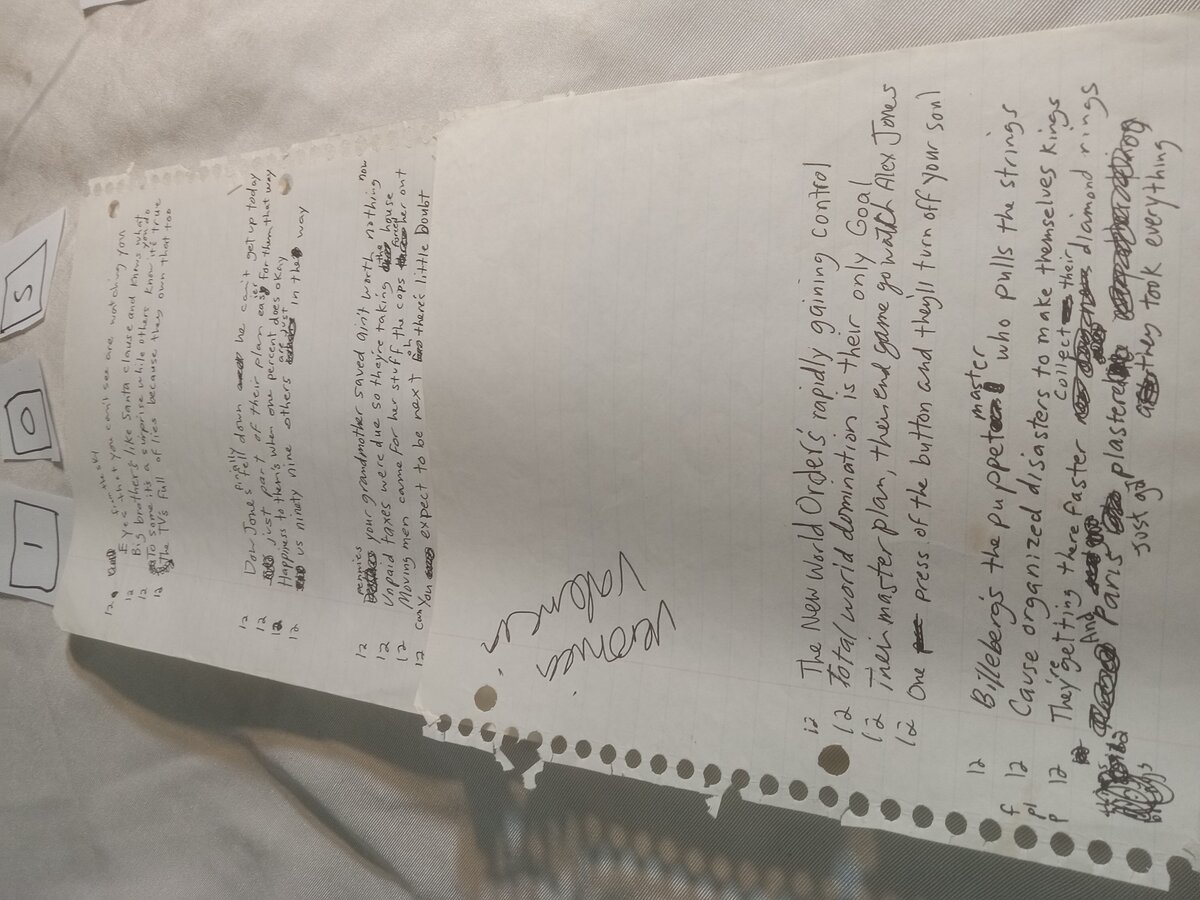 I
O
S
from the sky
12 Eyes that you can't see are watching you
12 Big brothers like Santa clause and knows what you do
12 To some it's a surprise while others know it's true
12 The TVs full of lies because they own that too
12 Dow Jones finally fell down he can't get up today
12 just part of their plan easier for them that way
12 Happiness to them's when one percent does okay
12 us ninety nine others are just in the way
12 pennies your grandmother saved aint worth nothing now
12 Unpaid taxes were due so they're taking the house
12 Moving men came for her stuff the cops forced her out
12 can you expect to be next oh there's little Doubt
Veronica
Valencia
12 The New World Orders' rapidly gaining control
12 Total world domination is their only Goal
12 Their master plan, their end game go watch Alex Jones
12 One press of the button and they'll turn off your soul
12 Billeberg's the puppet master who pulls the strings
f 12 Cause organized disasters to make themselves kings
pl
p 12 They're getting there faster collect their diamond rings
And paris just got plastered they took everything